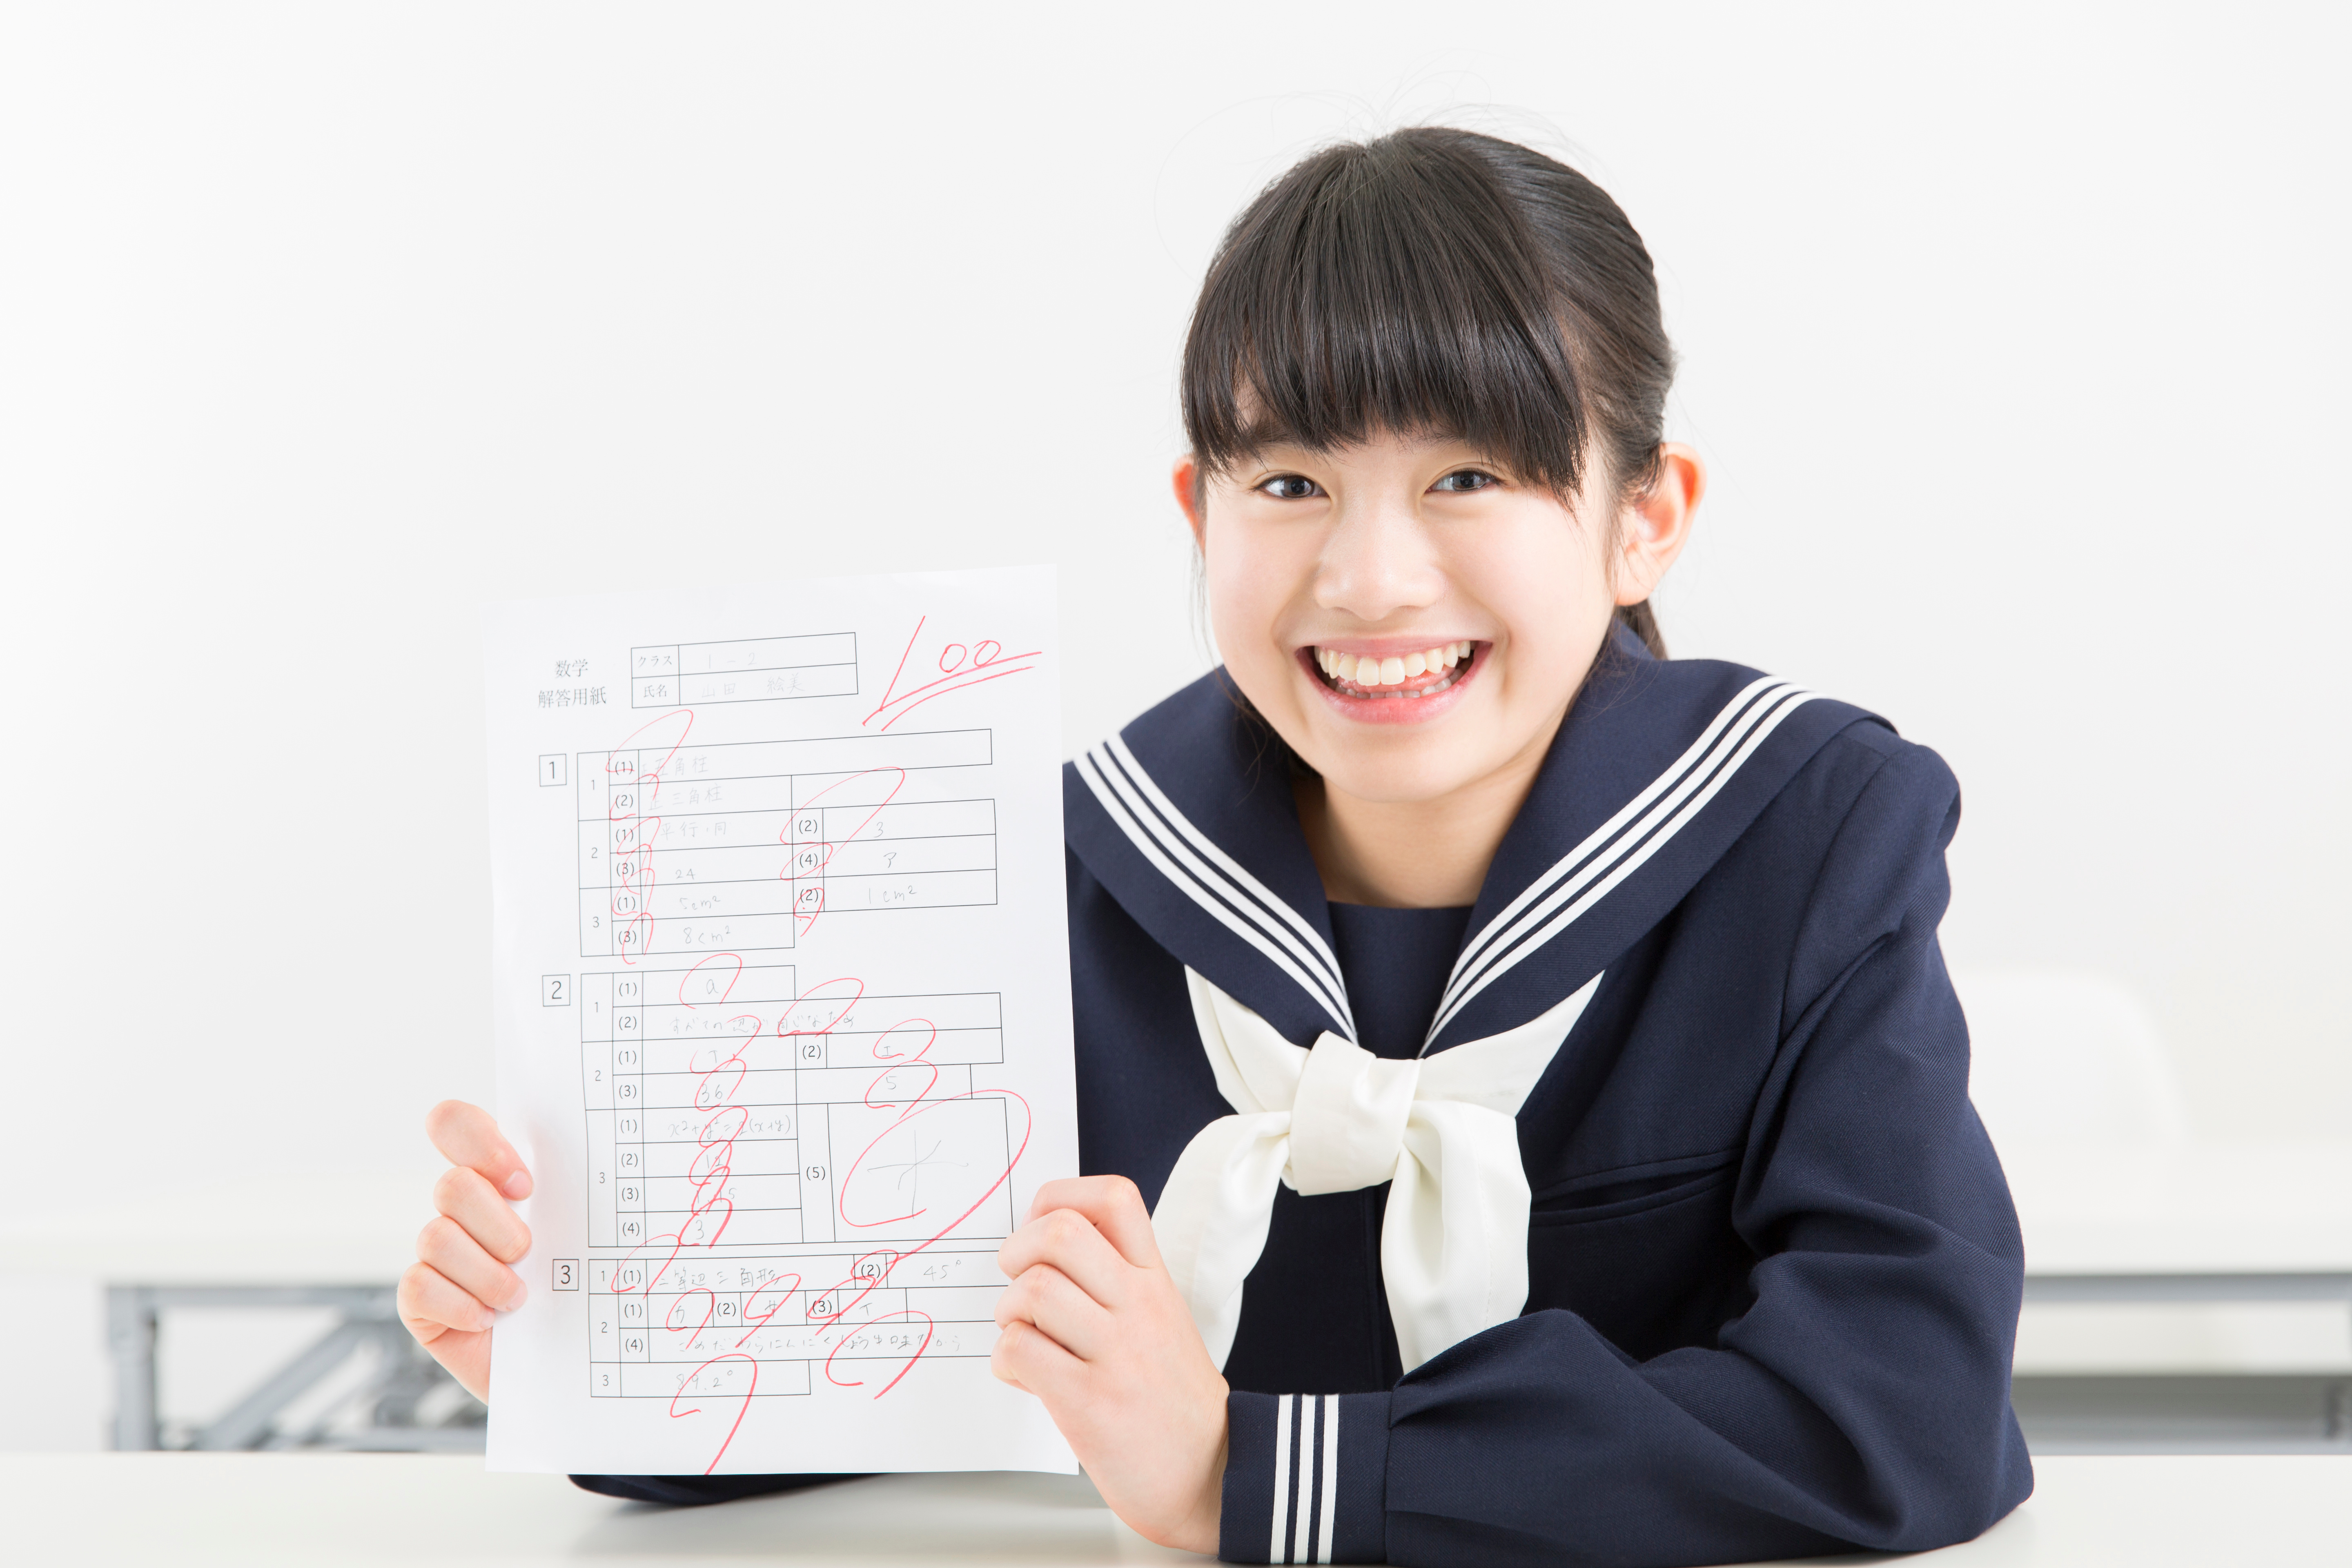 数学
解答用紙
クラス 1-2
氏名 山田 絵美
100
1
1 (1) 正五角柱
(2) 正三角柱
2 (1) 平行・同 (2) 3
(3) 24 (4) ア
3 (1) 5cm² (2) 1cm²
(3) 8cm²
2
1 (1) a
(2) すべての辺が同じなため
2 (1) (2) エ
(3) 36 5
3 (1) x²+y²=2(x+y) (5)
(2)
(3)
(4) 3
3
1 (1) 二等辺三角形 (2) 45°
2 (1) カ (2) サ (3) イ
(4)
3 89.2°